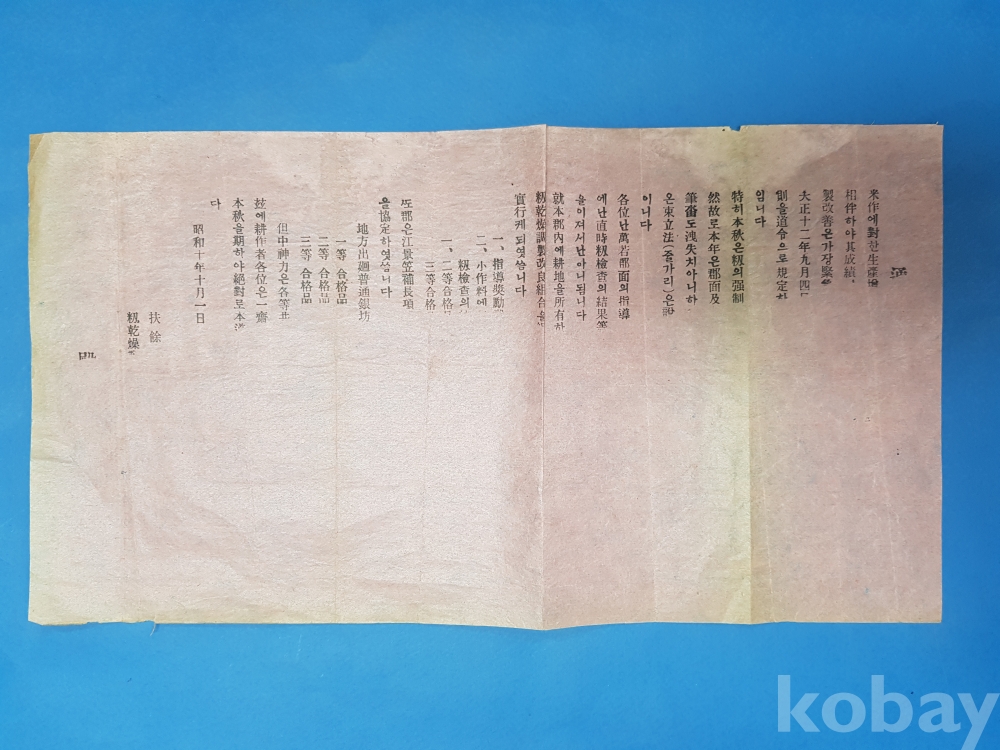 米作에對한生產
相伴하야其成績
製改善은가장緊
大正十二年九月四日
則을道令으로規定하
임니다
特히本秋은籾의强制
然故로本年은郡面及
筆畓도洩失치아니하
온束立法(줄가리)은
이니다
各位난萬若郡面의指導
에난直時籾檢查의結果等
을이저서난아니됨니다
就本郡內에耕地를所有하
籾乾燥調製改良組合을
實行케되엿슴니다
一、指導奬勵
二、小作料에
籾檢查의
一、二等合格
三等合格
또郡은江景笠浦長項
을協定하엿슴니다
地方出廻普通銀坊
一等 合格品
二等 合格品
三等 合格品
但中神力은各等共
玆에耕作者各位은一齊
本秋을期하야絕對로本
다
昭和十年十月一日
扶餘
籾乾燥
kobay